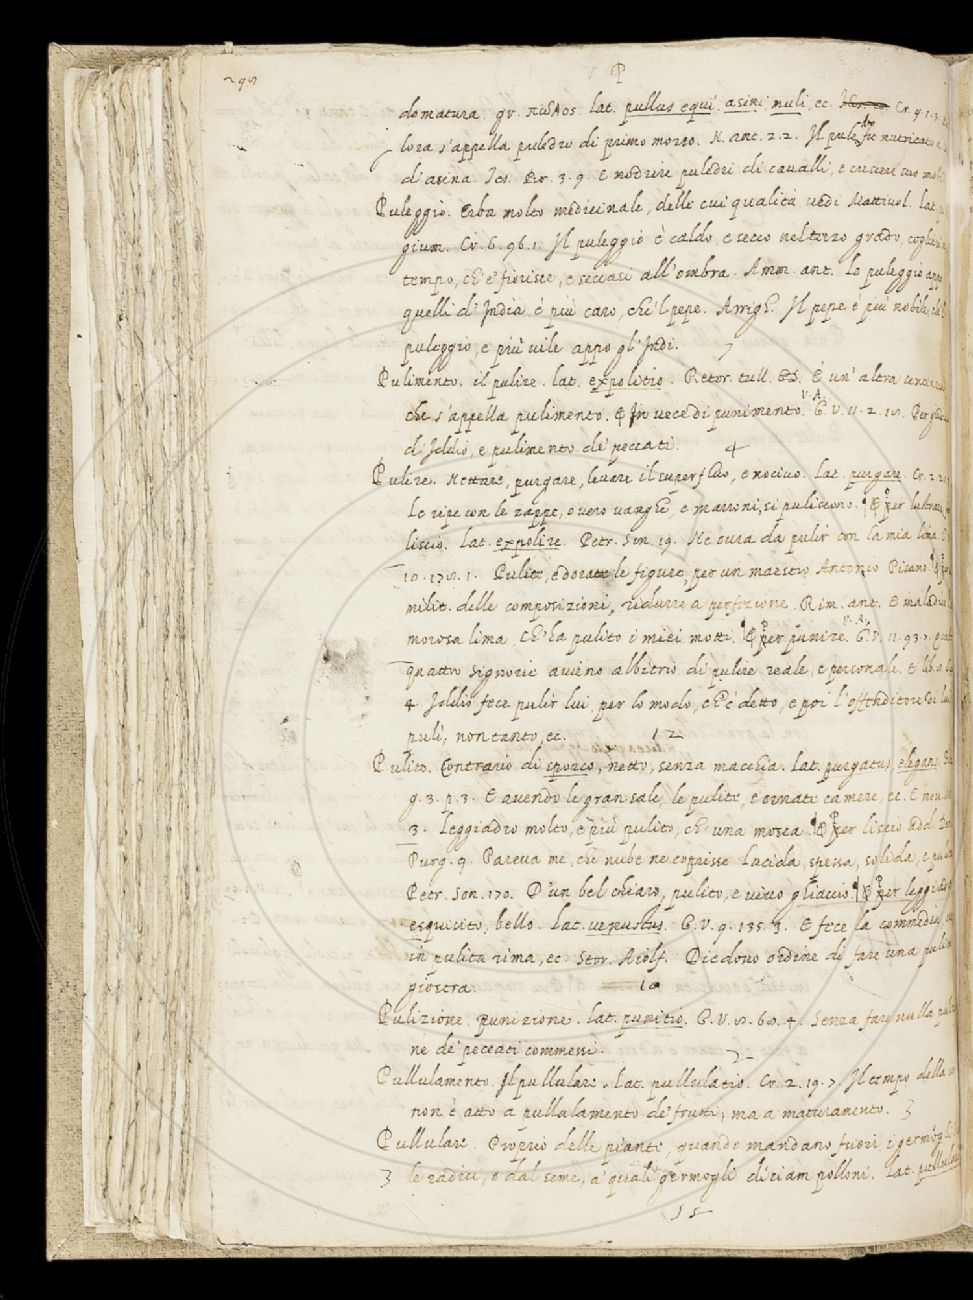 P
domatura. gr. πῶλος. lat. pullus equi, asini, muli, ec. Cr. 9. 1. 3.
lora s'appella puledro di primo morso. N. ant. 2. 2. Il puledro fu nutricato a
d'asina. Tes. Br. 3. 9. E nodrire puledri di cavalli, e
Puleggio. Erba molto medicinale, delle cui qualità vedi Mattiuol. lat.
gium. Cr. 6. 96. 1. Il puleggio è caldo, e secco nel terzo grado,
tempo, ch' e' fiorisce, e seccasi all'ombra. Amm. ant. Lo puleggio appo
quelli d' India, è più caro, che 'l pepe. Arrigh. Il pepe è più nobile,
puleggio, e più vile appo gl' Indi. 7
Pulimento. il pulire. lat. expolitio. Retor. tull. E' un' altra
che s'appella pulimento. ¶ In vece di punimento. V. A. G. V. 11. 2. 18. Per
d' Iddio, e pulimento de' peccati. 4
Pulire. Nettare, purgare, levare il superfluo, e nocivo. Lat. purgare. Cr. 2.
Le ripe con le zappe, overo vanghe, e marroni, si puliscono. ¶ E per lustrare,
liscio. Lat. expolire. Petr. Son. 19. Nè oura da pulir con la mia lima.
10. 178. 1. Pulite, e dorate le figure, per un maestro Antonio Pisano. ¶ E per
milit. delle composizioni, ridurre a perfezione. Rim. ant. E maladico
morosa lima, Ch' ha pulito i miei motti. ¶ E per punire. V. A. G. V. 11. 93. 2.
quattro Signorie avino albitrio di pulire reale, e personale. E lib.
4. Iddio fece pulir lui, per lo modo, ch' è detto, e poi l' offenditore di
pulì, non tanto, ec. 12
Pulito. Contrario di sporco, netto, senza macchia. Lat. purgatus, elegans.
g. 3. p. 3. E avendo le gran sale, le pulite, e ornate camere, ec. E
3. Leggiadro molto, e più pulito, ch' una mosca. ¶ E per liscio
Purg. 9. Pareva me, che nube ne coprisse Lucida, spessa, solida, e
Petr. Son. 170. D'un bel chiaro, pulito, e vivo ghiaccio. ¶ E per leggiadro
esquisito, bello. Lat. venustus. G. V. 9. 135. 3. E fece la commedia,
in pulita rima, ec. Stor. Aiolf. Diedono ordine di fare una pulita
giostra. 10
Pulizione. punizione. Lat. punitio. G. V. 8. 68. 4. Senza fare nulla
ne de' peccati commessi. 2
Pullulamento. Il pullulare. Lat. pullulatio. Cr. 2. 19. 7. Il tempo della
non è atto a pullulamento de' frutti, ma a maturamento. 3
Pullulare. Proprio delle piante, quando mandano fuori i germogli
3 le radici, o dal seme, a' quali germogli diciam polloni. Lat. pullulare
55